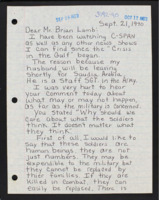 SEP 26 REC'D
OCT 10 REC'D
Sept. 21, 1990
Dear Mr. Brian Lamb:
I have been watching C-SPAN
as well as any other news shows
I can find since this "Crisis
in the Gulf" began.
The reason because my
husband will be leaving
shortly for Saudia Arabia.
He is a Staff Sgt. in the Army.
I was very hurt to hear
your comment today about
what may or may not happen,
as far as the military is concerned.
You stated "Why should we
care about what the soldiers
think. It doesn't matter what
they think."
First of all, I would like
to say that these soldiers are
human beings, they are not
just numbers. They may be
expendable to the military but
they cannot be replaced to
their families. If they are
killed in Combat, they can
easily be replaced. There is